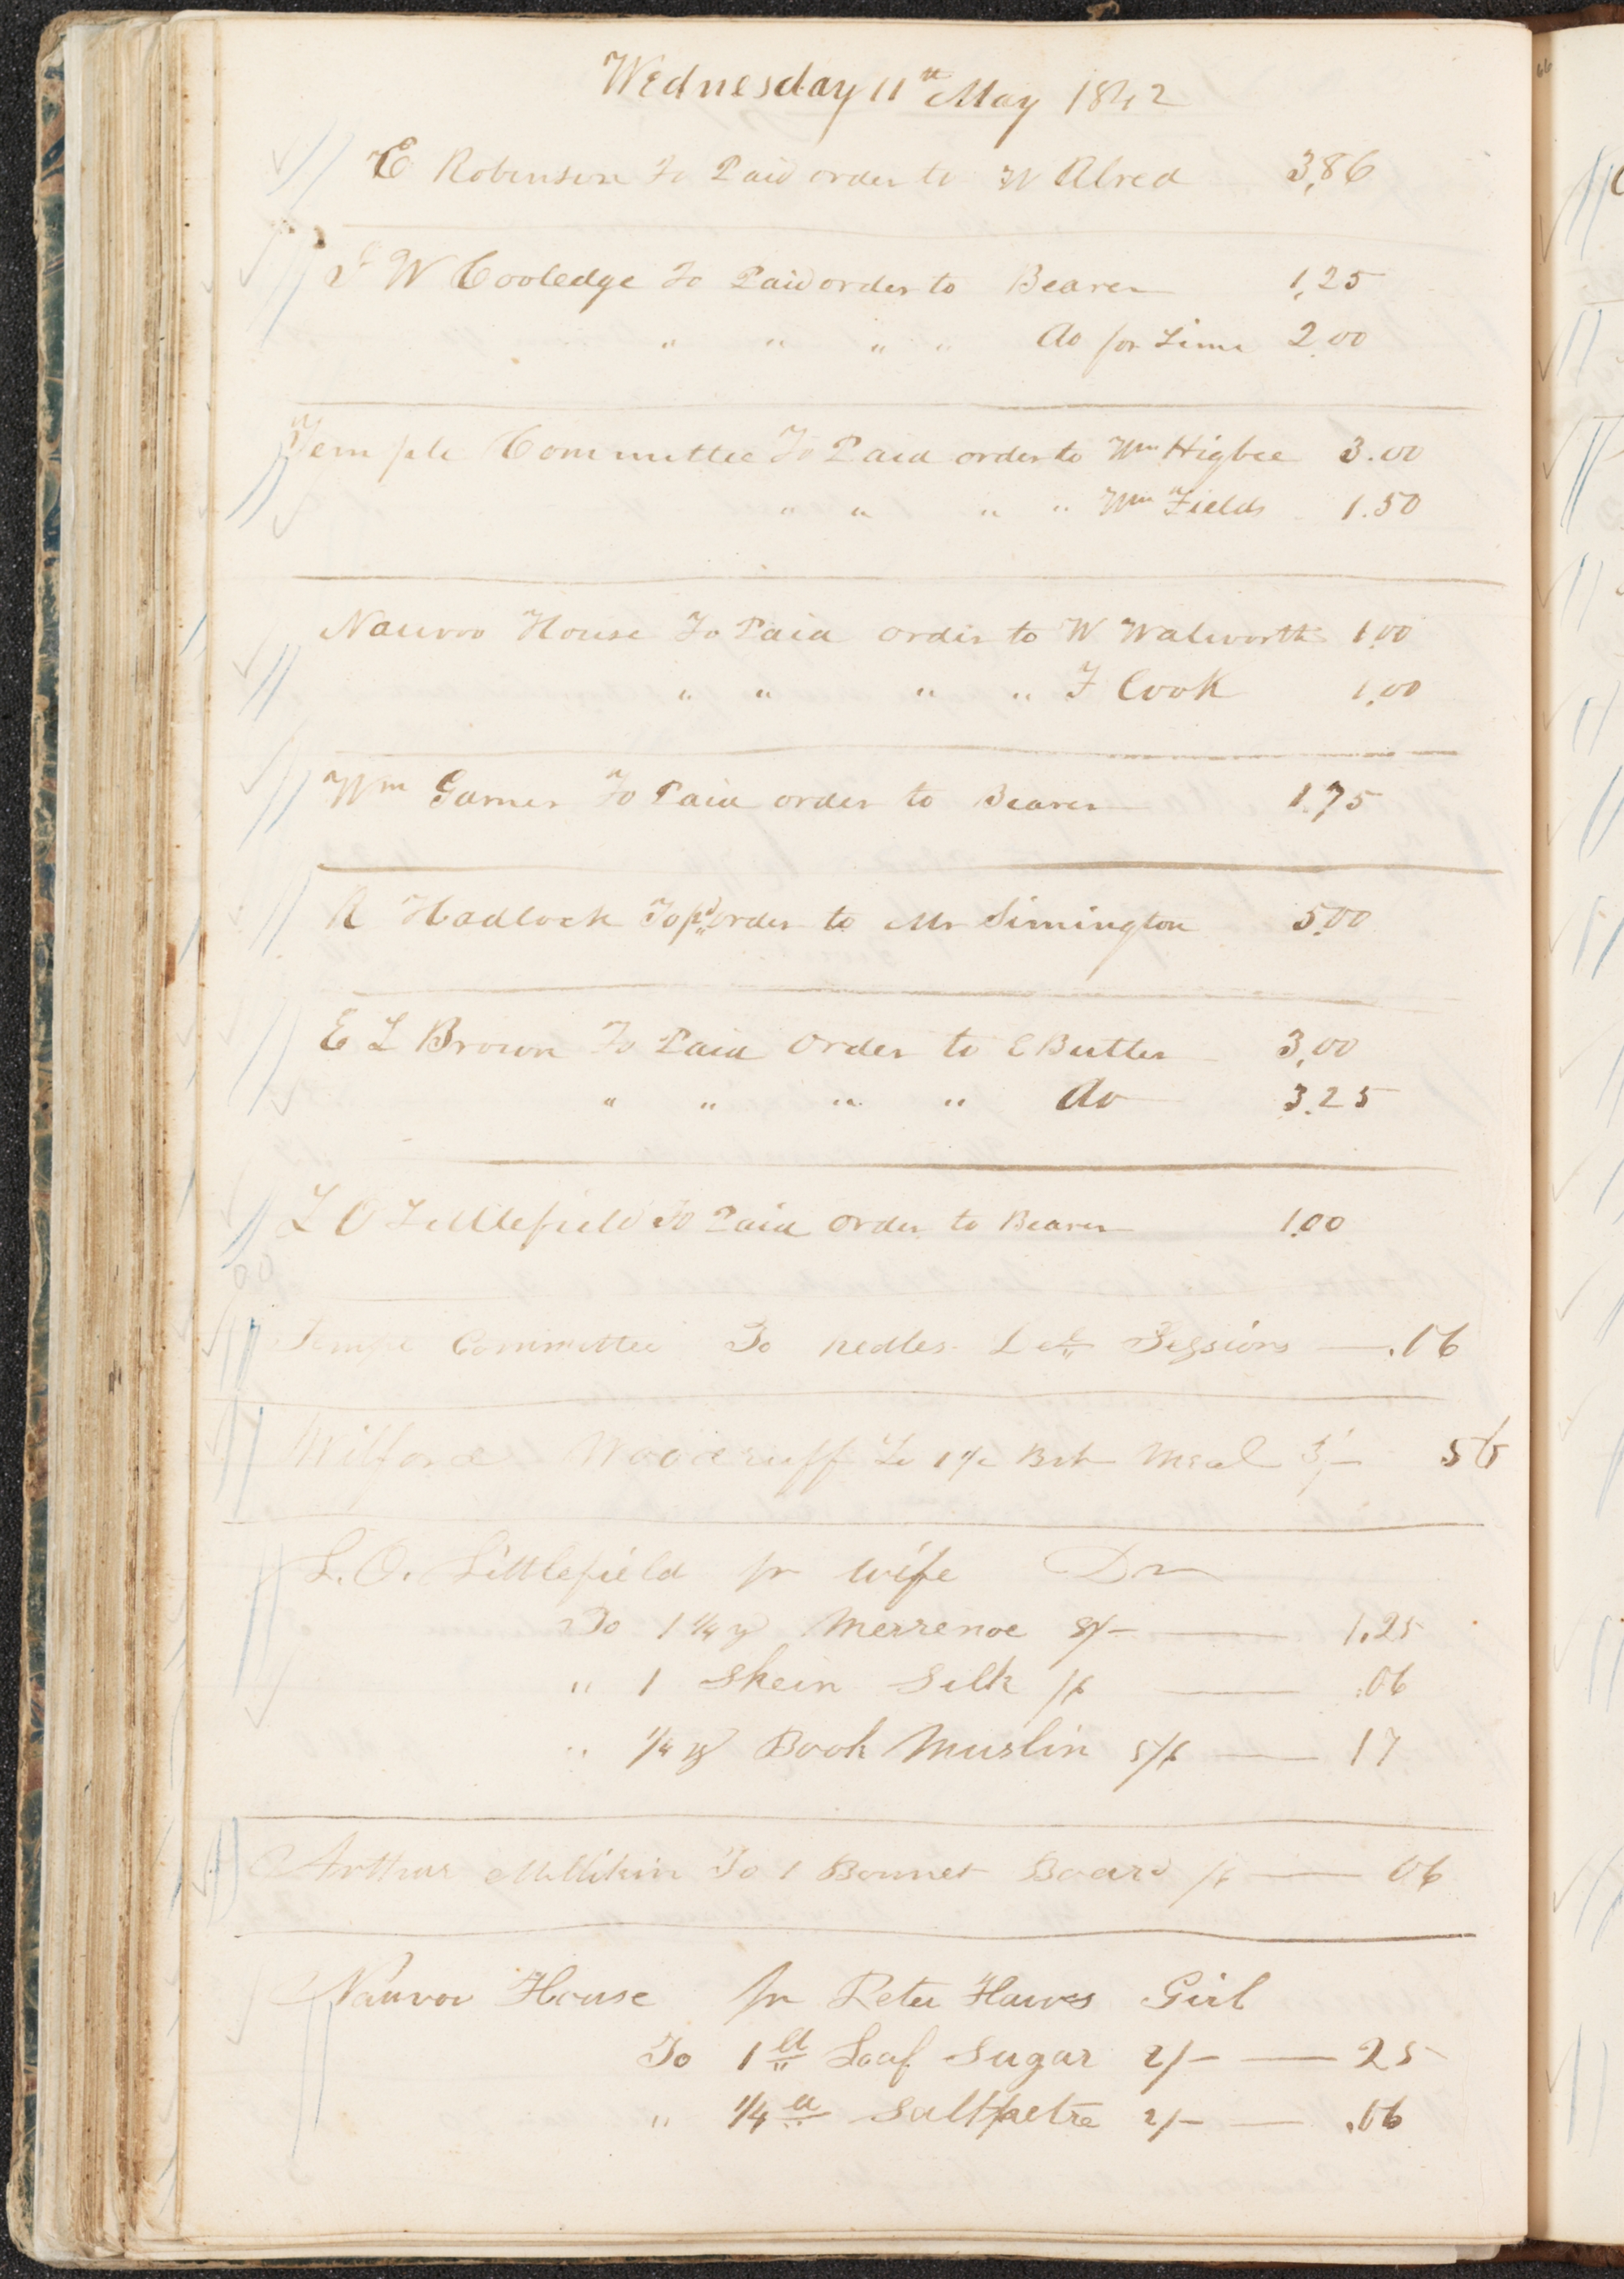 Wednesday 11th May 1842
E Robinson To Paid order to W Alred 3,86
J W Cooledge To Paid order to Bearer 1,25
" " " " do for Lime 2.00
Temple Committee To Paid order to Wm Higbee 3.00
" " " " Wm Fields 1.50
Nauvoo House To Paid order to W Walworth 1,00
" " " " F Cook 1,00
Wm Garner To Paid order to Bearer 1.75
R Hadlock To pd order to Mr Simington 5,00
E L Brown To Paid Order to E Butler 3,00
" " " " do 3.25
L O Littlefield To Paid order to Bearer 1.00
Committee To nedles Sessions .06
Wilford Woodruff To 1 1/2 Bsh Meal 3/- 56
L. O. Littlefield pr wife Dr
To 1 1/4 yd Merrenoe 8/- 1.25
" 1 Skein Silk /6 .06
" 1/4 yd Book Muslin 5/6 17
Arthur Millikin To 1 Bonnet Board /6 06
Nauvoo House pr Peter Hawes Girl
To 1 lb Loaf Sugar 2/- 25
" 1/4 lb Saltpetre 2/- .06